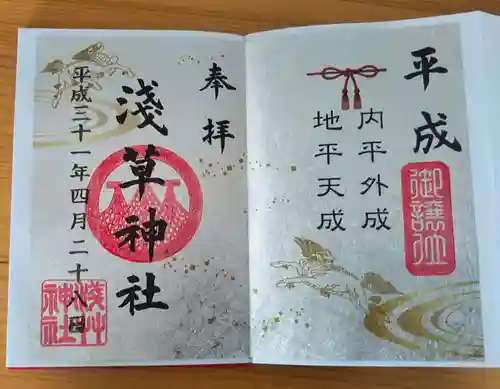 平成
御譲位
内平外成
地平天成
奉拝
淺草神社
平成三十一年四月二十八日
浅草
神社